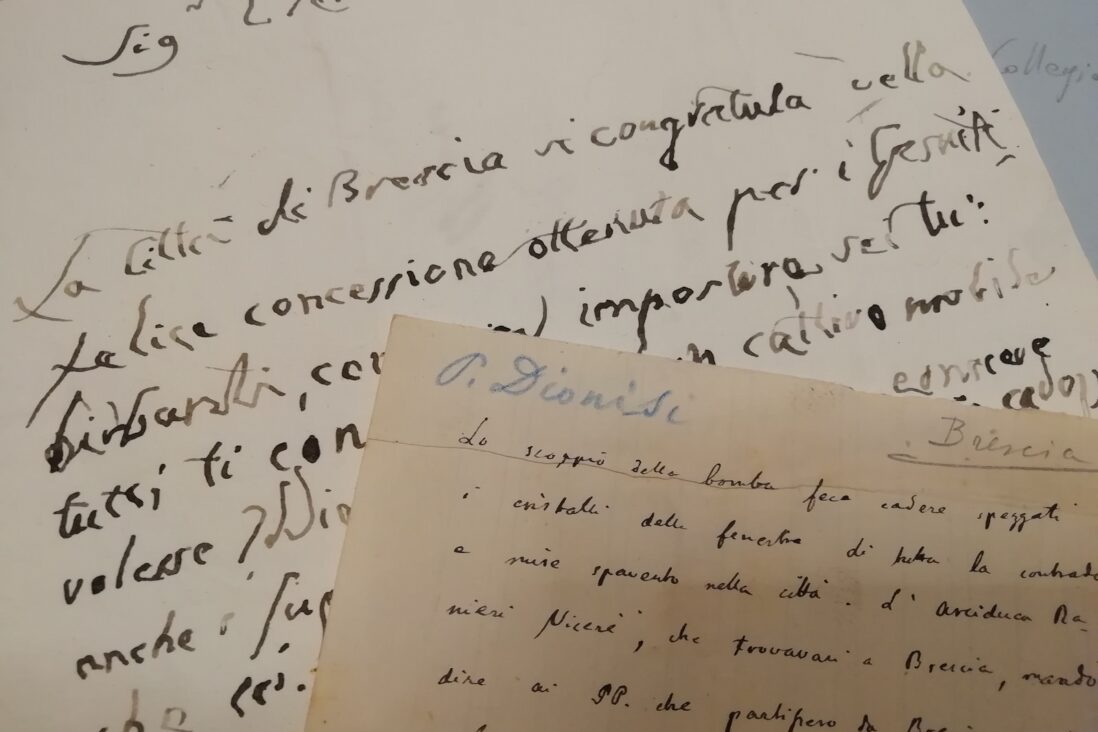 Sig
La Città di Brescia si congratula della
felice concessione ottenuta per i Gesuiti
birbanti, con impostura sei tu:
cattivo nobile
tutti ti con
volesse Dio
anche i
che
Collegio
P. Dionisi
Brescia
Lo scoppio della bomba fece cadere spezzati
i cristalli delle fenestre di tutta la contrada
e mise spavento nella città. L'Arciduca Ra-
nieri Vicerè, che trovavasi a Brescia, mandò
dire ai PP. che partissero da